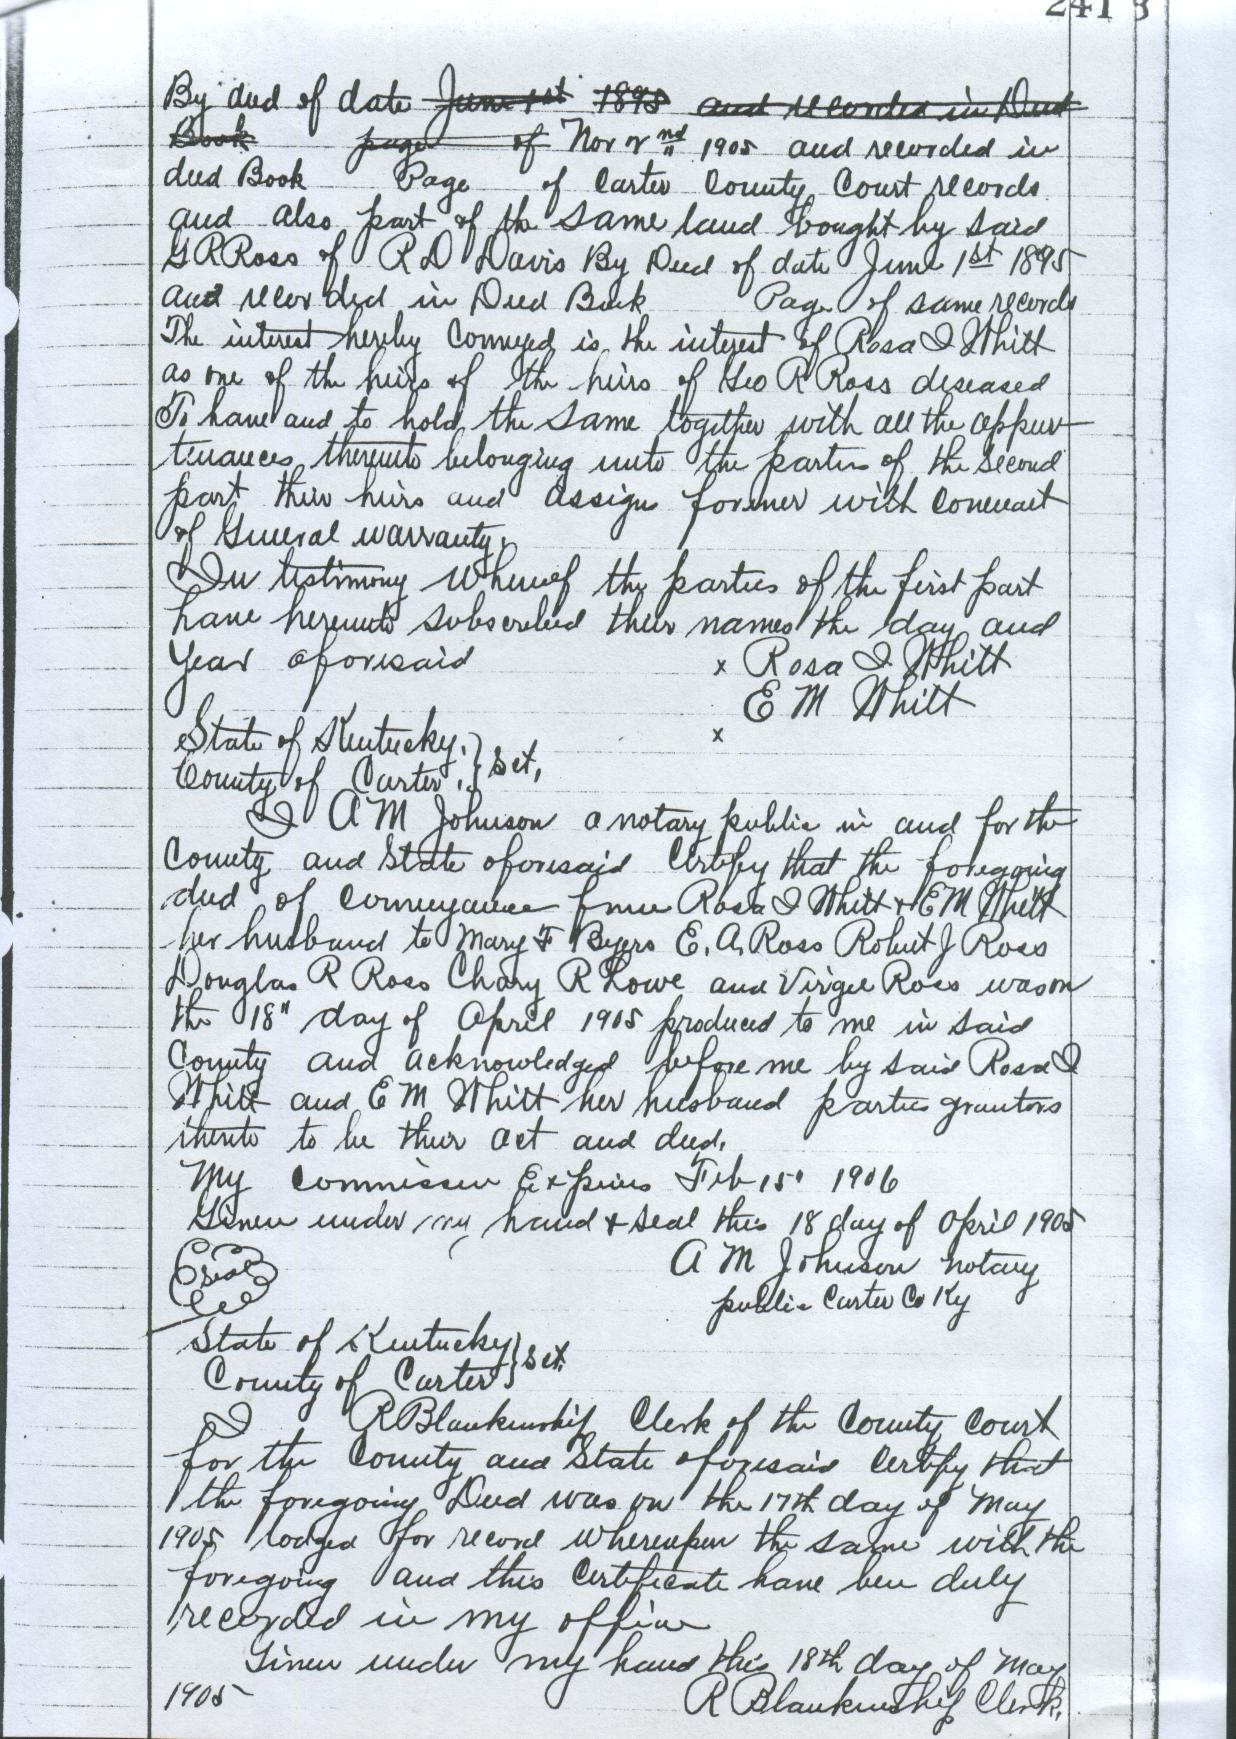 241
By deed of date June 1st 1895 and recorded in Deed
Book page of Nov 2nd 1905 and recorded in
deed Book Page of Carter County Court records
and also part of the same land bought by said
G R Ross of R D Davis By Deed of date June 1st 1895
and recorded in Deed Book Page of same records
The interest hereby conveyed is the interest of Rosa I Whitt
as one of the heirs of the heirs of Geo R Ross deseased
To have and to hold the same together with all the appur
tenances thereunto belonging unto the parties of the second
part their heirs and assigns forever with
of General warranty.
In testimony whereof the parties of the first part
have hereunto subscribed their names the day and
year aforesaid x Rosa I Whitt
E M Whitt
x
State of Kentucky,
County of Carter, } Sct,
I A M Johnson a notary public in and for the
County and State aforesaid Certify that the foregoing
deed of conveyance from Rosa I Whitt + E M Whitt
her husband to Mary F Byers E. A. Ross Robert J Ross
Douglas R Ross R Lowe and Virgie Ross was on
the 18" day of April 1905 produced to me in said
County and acknowledged before me by said Rosa I
Whitt and E M Whitt her husband parties grantors
thereto to be their act and deed.
My commission Expires Feb 15" 1906
Given under my hand + seal this 18 day of April 1905
Seal A M Johnson notary
public Carter Co Ky
State of Kentucky
County of Carter } Sct.
I R Blankenship Clerk of the County Court
for the County and State aforesaid Certify that
the foregoing Deed was on the 17th day of May
1905 lodged for record whereupon the same with the
foregoing and this certificate have been duly
recorded in my office
Given under my hand this 18th day of May
1905 R Blankenship Clerk.